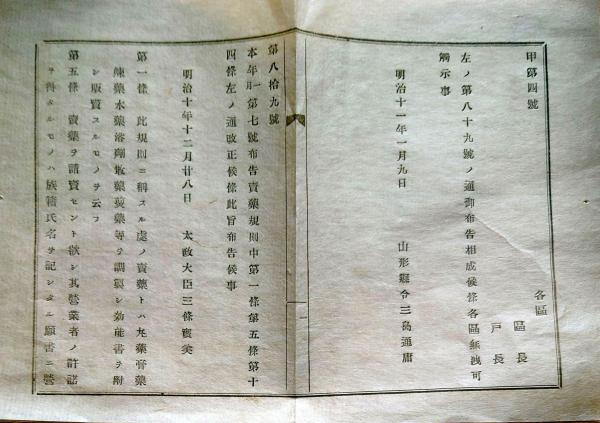 甲第四號
各區
區長
戸長
左ノ第八十九號ノ通御布告相成候條各區無洩可
觸示事
明治十一年一月九日
山形縣令三島通庸
第八拾九號
本年一月第七號布告賣藥規則中第一條第五條第十
四條左ノ通改正候條此旨布告候事
明治十年十二月廿八日
太政大臣三條實美
第一條 此規則ニ稱スル處ノ賣藥トハ丸藥膏藥
煉藥水藥溶劑散藥煎藥等ヲ調製シ効能書ヲ附
シ販賣スルモノヲ云フ
第五條 賣藥ヲ請賣セント欲シ其營業者ノ許諾
ヲ得タルモノハ族籍氏名ヲ記シタル願書ニ營